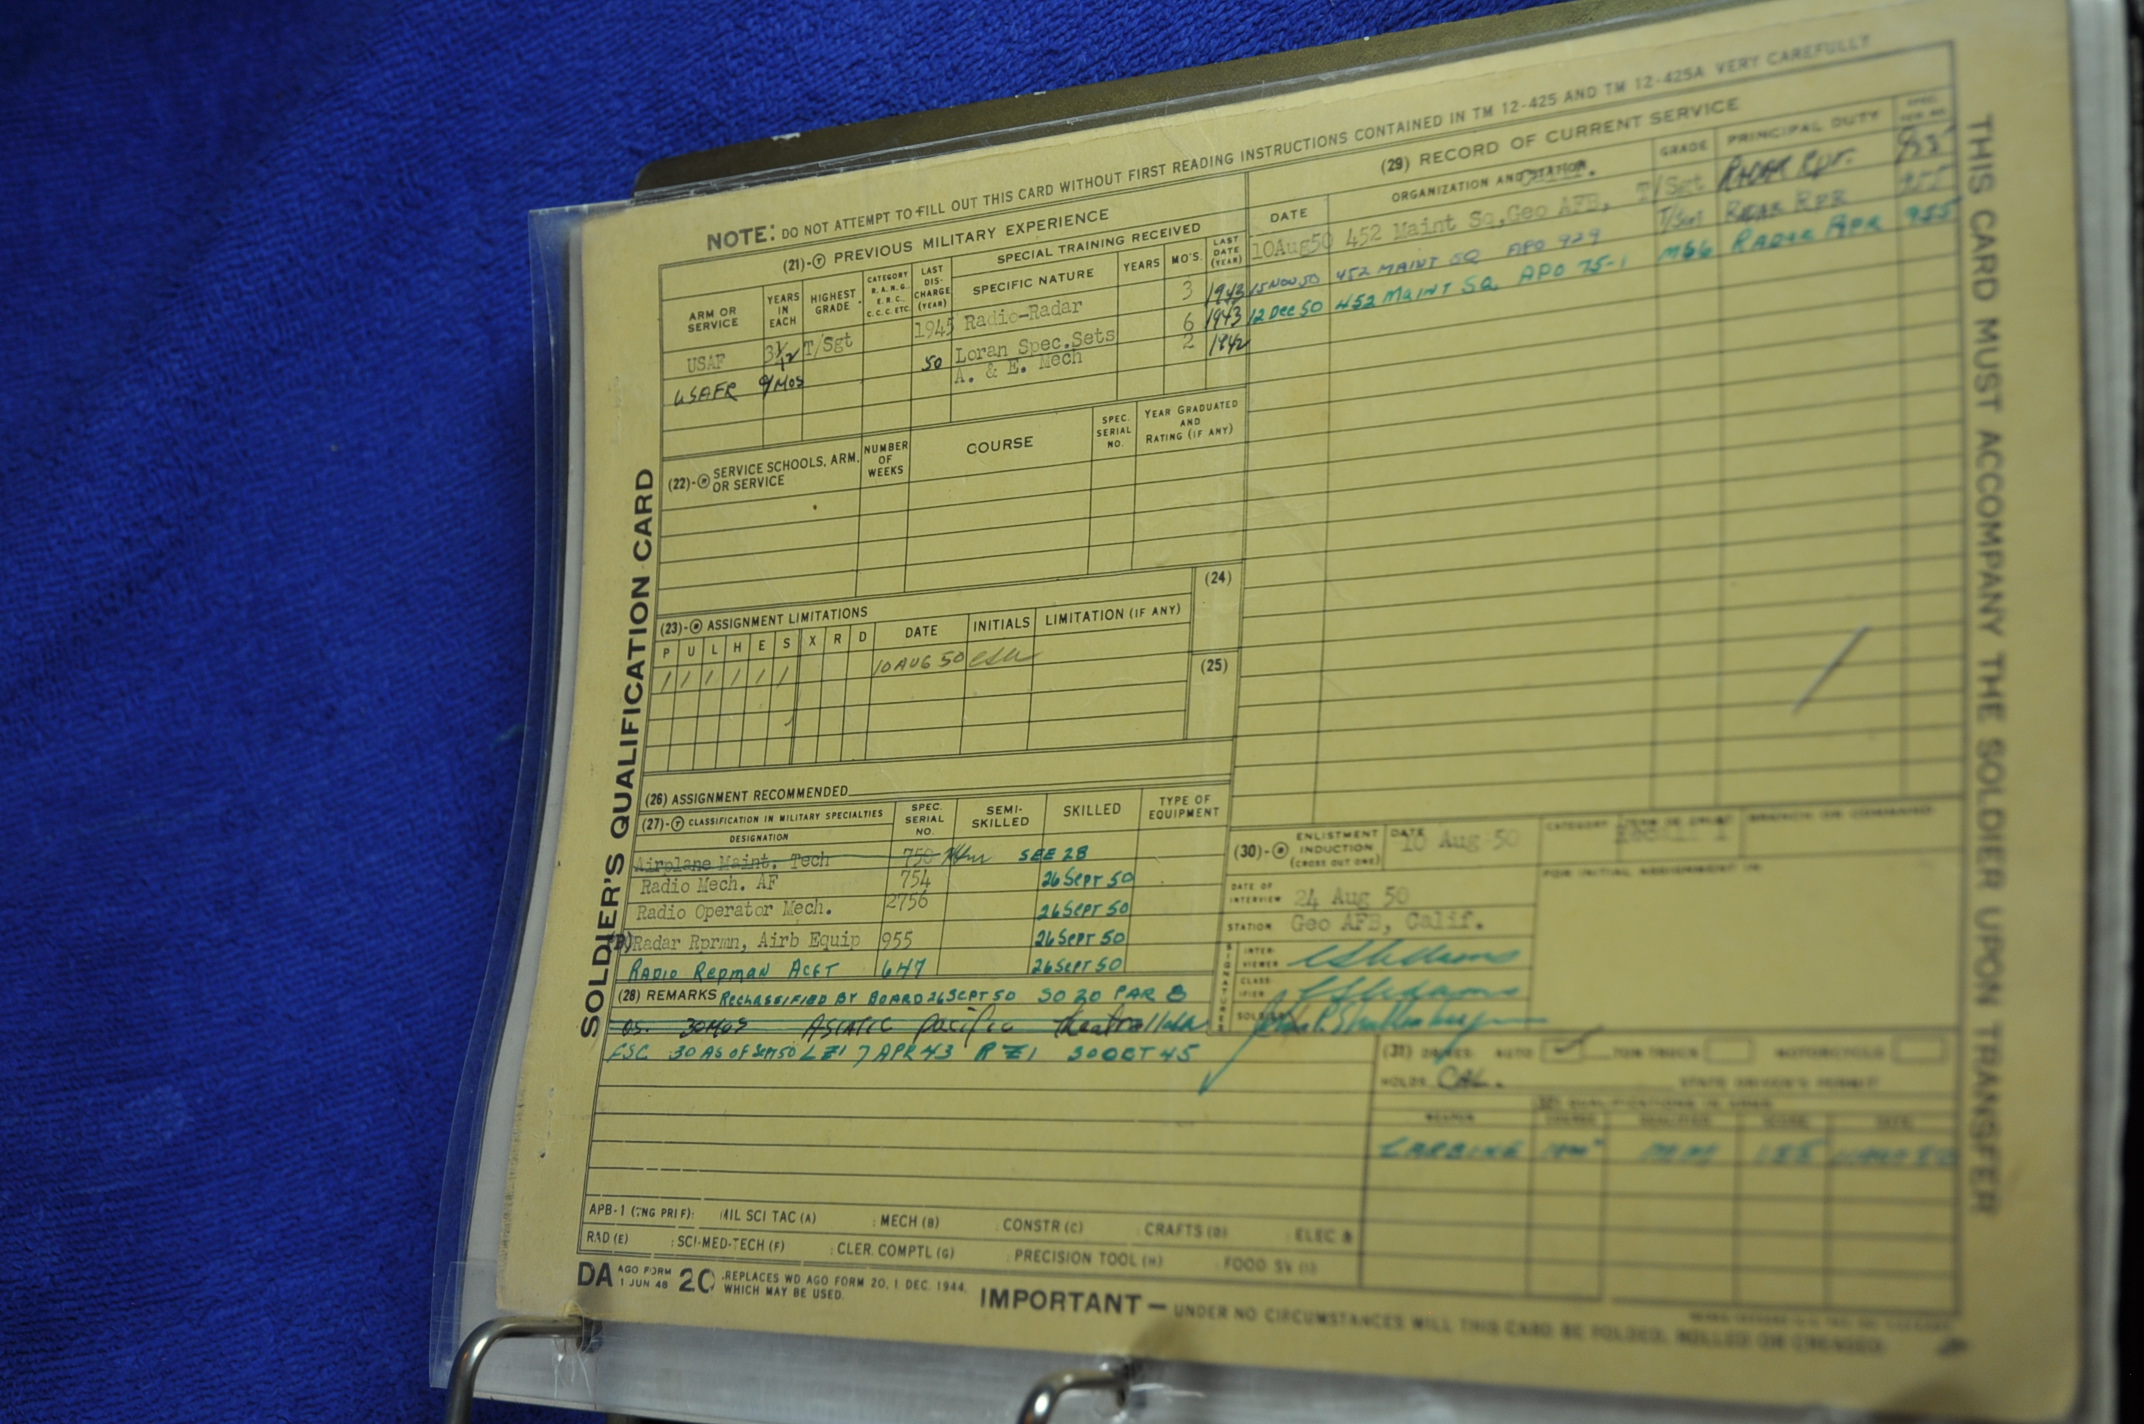 NOTE: DO NOT ATTEMPT TO FILL OUT THIS CARD WITHOUT FIRST READING INSTRUCTIONS CONTAINED IN TM 12-425 AND TM 12-425A VERY CAREFULLY
SOLDIER'S QUALIFICATION CARD
(21)-T PREVIOUS MILITARY EXPERIENCE
ARM OR SERVICE YEARS IN EACH HIGHEST GRADE CATEGORY R.A. N.G. E.R.C. C.C.C. ETC. LAST DISCHARGE (YEAR) SPECIAL TRAINING RECEIVED
SPECIFIC NATURE YEARS MO'S. LAST DATE (YEAR)
USAF 3 1/12 T/Sgt 1945 Radio-Radar 3 1943
USAFR 9/MOS 50 Loran Spec.Sets 6 1943
A. & E. Mech 2 1942
(22)- SERVICE SCHOOLS, ARM, OR SERVICE NUMBER OF WEEKS COURSE SPEC. SERIAL NO. YEAR GRADUATED AND RATING (IF ANY)
(23)- ASSIGNMENT LIMITATIONS (24)
P U L H E S X R D DATE INITIALS LIMITATION (IF ANY)
1 1 1 1 1 1 10 AUG 50
(25)
(26) ASSIGNMENT RECOMMENDED
(27)-T CLASSIFICATION IN MILITARY SPECIALTIES
DESIGNATION SPEC. SERIAL NO. SEMI-SKILLED SKILLED TYPE OF EQUIPMENT
Airplane Maint. Tech 750 SEE 28
Radio Mech. AF 754 26 Sept 50
Radio Operator Mech. 2756 26 Sept 50
Radar Rprmn, Airb Equip 955 26 Sept 50
RADIO REPMAN ACFT 647 26 Sept 50
(28) REMARKS RECLASSIFIED BY BOARD 26 SEPT 50 SO 20 PAR 8
OS. 30 MOS ASIATIC Pacific theatre
FSC 30 AS OF SEPT 50 LZI 7 APR 43 RZI 30 OCT 45
APB-1 (TNG PRIF): MIL SCI TAC (A) : MECH (B) : CONSTR (C) : CRAFTS (D) : ELEC &
RAD (E) :SCI-MED-TECH (F) :CLER. COMPTL (G) : PRECISION TOOL (H) : FOOD SV (I)
DA AGO FORM 1 JUN 48 20 REPLACES WD AGO FORM 20, 1 DEC. 1944, WHICH MAY BE USED.
(29) RECORD OF CURRENT SERVICE
DATE ORGANIZATION AND STATION GRADE PRINCIPAL DUTY SPEC. SER. NO.
10Aug50 452 Maint Sq, Geo AFB, Calif. T/Sgt RADAR RPR. 955
15 NOV 50 452 MAINT SQ APO 929 T/Sgt RADAR RPR 955
12 Dec 50 452 MAINT SQ. APO 75-1 RADAR RPR 955
(30)- ENLISTMENT INDUCTION (CROSS OUT ONE) DATE 10 Aug 50 CATEGORY BRANCH OR COMMAND
DATE OF INTERVIEW 24 Aug 50 FOR INITIAL ASSIGNMENT IN
STATION Geo AFB, Calif.
SIGNATURES
INTERVIEWER
CLASSIFIER
SOLDIER
(31) DRIVES: AUTO TON TRUCK MOTORCYCLE
HOLDS CAL. STATE DRIVER'S PERMIT
(32) QUALIFICATIONS IN ARMS
WEAPON COURSE SCORE DATE
CARBINE MM 155
THIS CARD MUST ACCOMPANY THE SOLDIER UPON TRANSFER
IMPORTANT — UNDER NO CIRCUMSTANCES WILL THIS CARD BE FOLDED, ROLLED OR CREASED